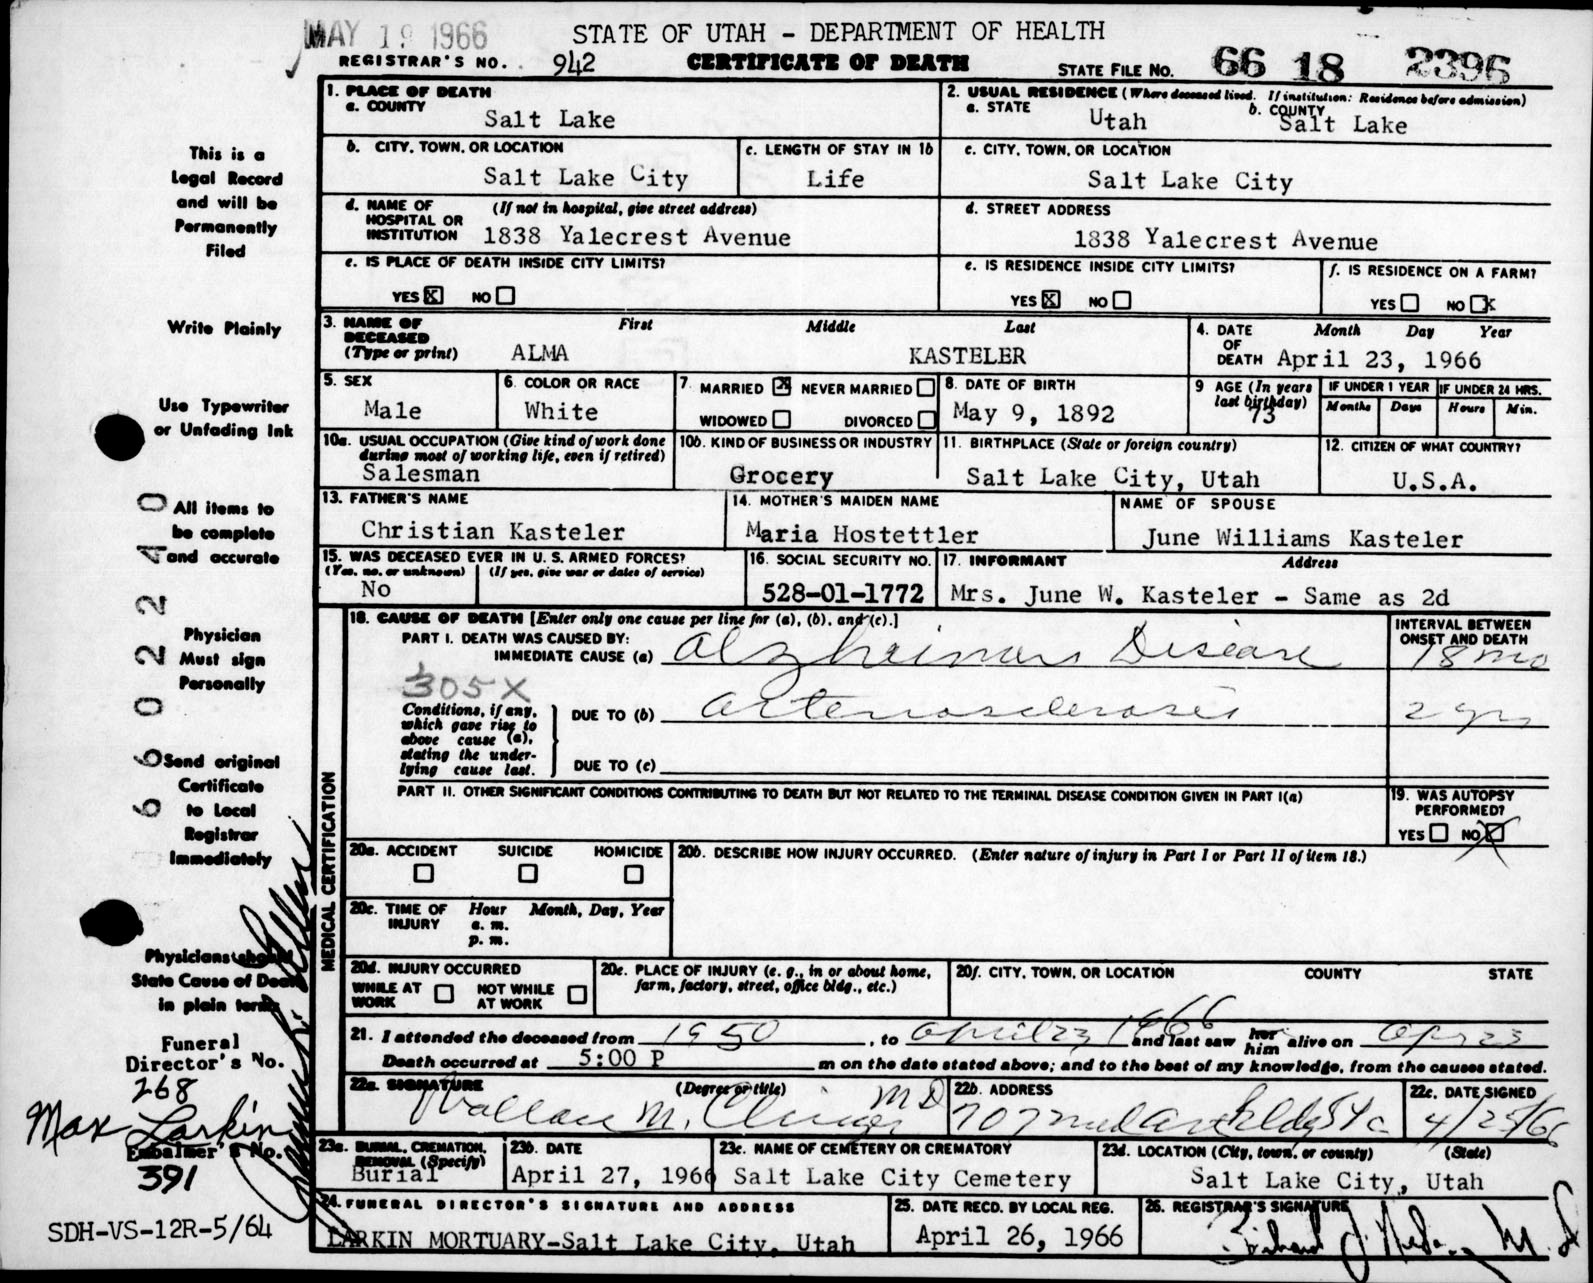 MAY 19 1966
STATE OF UTAH - DEPARTMENT OF HEALTH
REGISTRAR'S NO. 942
CERTIFICATE OF DEATH
STATE FILE NO. 66 18 2396
1. PLACE OF DEATH
a. COUNTY
Salt Lake
2. USUAL RESIDENCE (Where deceased lived. If institution: Residence before admission)
a. STATE
Utah
b. COUNTY
Salt Lake
b. CITY, TOWN, OR LOCATION
Salt Lake City
c. LENGTH OF STAY IN 1b
Life
c. CITY, TOWN, OR LOCATION
Salt Lake City
d. NAME OF HOSPITAL OR INSTITUTION
(If not in hospital, give street address)
1838 Yalecrest Avenue
d. STREET ADDRESS
1838 Yalecrest Avenue
e. IS PLACE OF DEATH INSIDE CITY LIMITS?
YES X NO
e. IS RESIDENCE INSIDE CITY LIMITS?
YES X NO
f. IS RESIDENCE ON A FARM?
YES NO X
3. NAME OF DECEASED
(Type or print)
First Middle Last
ALMA KASTELER
4. DATE OF DEATH
Month Day Year
April 23, 1966
5. SEX
Male
6. COLOR OR RACE
White
7. MARRIED X NEVER MARRIED
WIDOWED DIVORCED
8. DATE OF BIRTH
May 9, 1892
9 AGE (In years last birthday)
73
IF UNDER 1 YEAR
Months Days
IF UNDER 24 HRS.
Hours Min.
10a. USUAL OCCUPATION (Give kind of work done during most of working life, even if retired)
Salesman
10b. KIND OF BUSINESS OR INDUSTRY
Grocery
11. BIRTHPLACE (State or foreign country)
Salt Lake City, Utah
12. CITIZEN OF WHAT COUNTRY?
U.S.A.
13. FATHER'S NAME
Christian Kasteler
14. MOTHER'S MAIDEN NAME
Maria Hostettler
NAME OF SPOUSE
June Williams Kasteler
15. WAS DECEASED EVER IN U. S. ARMED FORCES?
(Yes, no, or unknown) (If yes, give war or dates of service)
No
16. SOCIAL SECURITY NO.
528-01-1772
17. INFORMANT Address
Mrs. June W. Kasteler - Same as 2d
MEDICAL CERTIFICATION
18. CAUSE OF DEATH [Enter only one cause per line for (a), (b), and (c).]
PART I. DEATH WAS CAUSED BY:
IMMEDIATE CAUSE (a) Alzheimers Disease
INTERVAL BETWEEN ONSET AND DEATH
18 mo
305X
Conditions, if any, which gave rise to above cause (a), stating the underlying cause last.
DUE TO (b) Arteriosclerosis
2 yrs
DUE TO (c)
PART II. OTHER SIGNIFICANT CONDITIONS CONTRIBUTING TO DEATH BUT NOT RELATED TO THE TERMINAL DISEASE CONDITION GIVEN IN PART I(a)
19. WAS AUTOPSY PERFORMED?
YES NO X
20a. ACCIDENT SUICIDE HOMICIDE
20b. DESCRIBE HOW INJURY OCCURRED. (Enter nature of injury in Part I or Part II of item 18.)
20c. TIME OF INJURY
Hour Month, Day, Year
a. m.
p. m.
20d. INJURY OCCURRED
WHILE AT WORK NOT WHILE AT WORK
20e. PLACE OF INJURY (e. g., in or about home, farm, factory, street, office bldg., etc.)
20f. CITY, TOWN, OR LOCATION COUNTY STATE
21. I attended the deceased from 1950, to April 23, 1966 and last saw her him alive on Apr 23
Death occurred at 5:00 P m on the date stated above; and to the best of my knowledge, from the causes stated.
22a. SIGNATURE (Degree or title)
Wallace M. MD
22b. ADDRESS
707 Bldg
22c. DATE SIGNED
4/25/66
23a. BURIAL, CREMATION, REMOVAL (Specify)
Burial
23b. DATE
April 27, 1966
23c. NAME OF CEMETERY OR CREMATORY
Salt Lake City Cemetery
23d. LOCATION (City, town, or county) (State)
Salt Lake City, Utah
24. FUNERAL DIRECTOR'S SIGNATURE AND ADDRESS
LARKIN MORTUARY-Salt Lake City, Utah
25. DATE RECD. BY LOCAL REG.
April 26, 1966
26. REGISTRAR'S SIGNATURE
M.D.
This is a
Legal Record
and will be
Permanently
Filed
Write Plainly
Use Typewriter
or Unfading Ink
All items to
be complete
and accurate
Physician
Must sign
Personally
Send original
Certificate
to Local
Registrar
Immediately
Physicians should
State Cause of Death
in plain terms
660022240
Funeral
Director's No.
268
Max Larkin
Embalmer's No.
391
SDH-VS-12R-5/64